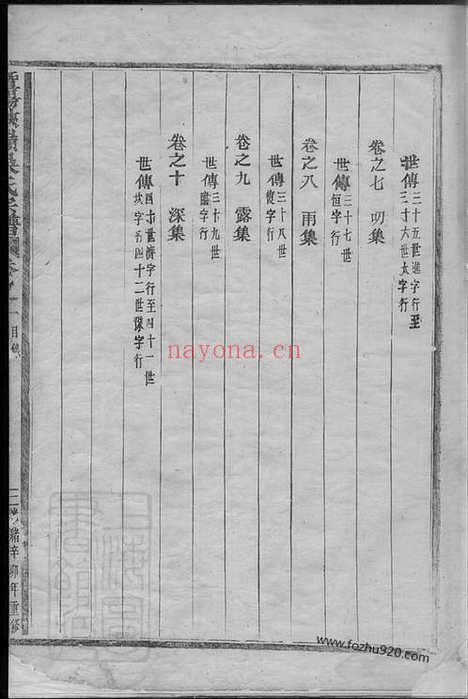 世傳三十五世進字行至
三十六世太字行
卷之七 叨集
世傳三十七世
恒字行
卷之八 雨集
世傳三十八世
復字行
卷之九 露集
世傳三十九世
臨字行
卷之十 深集
世傳四十世濟字行至四十一世
坎字行四十二世保字行
目錄
緒辛卯年重修
nayona.cn
www.fozhu920.com